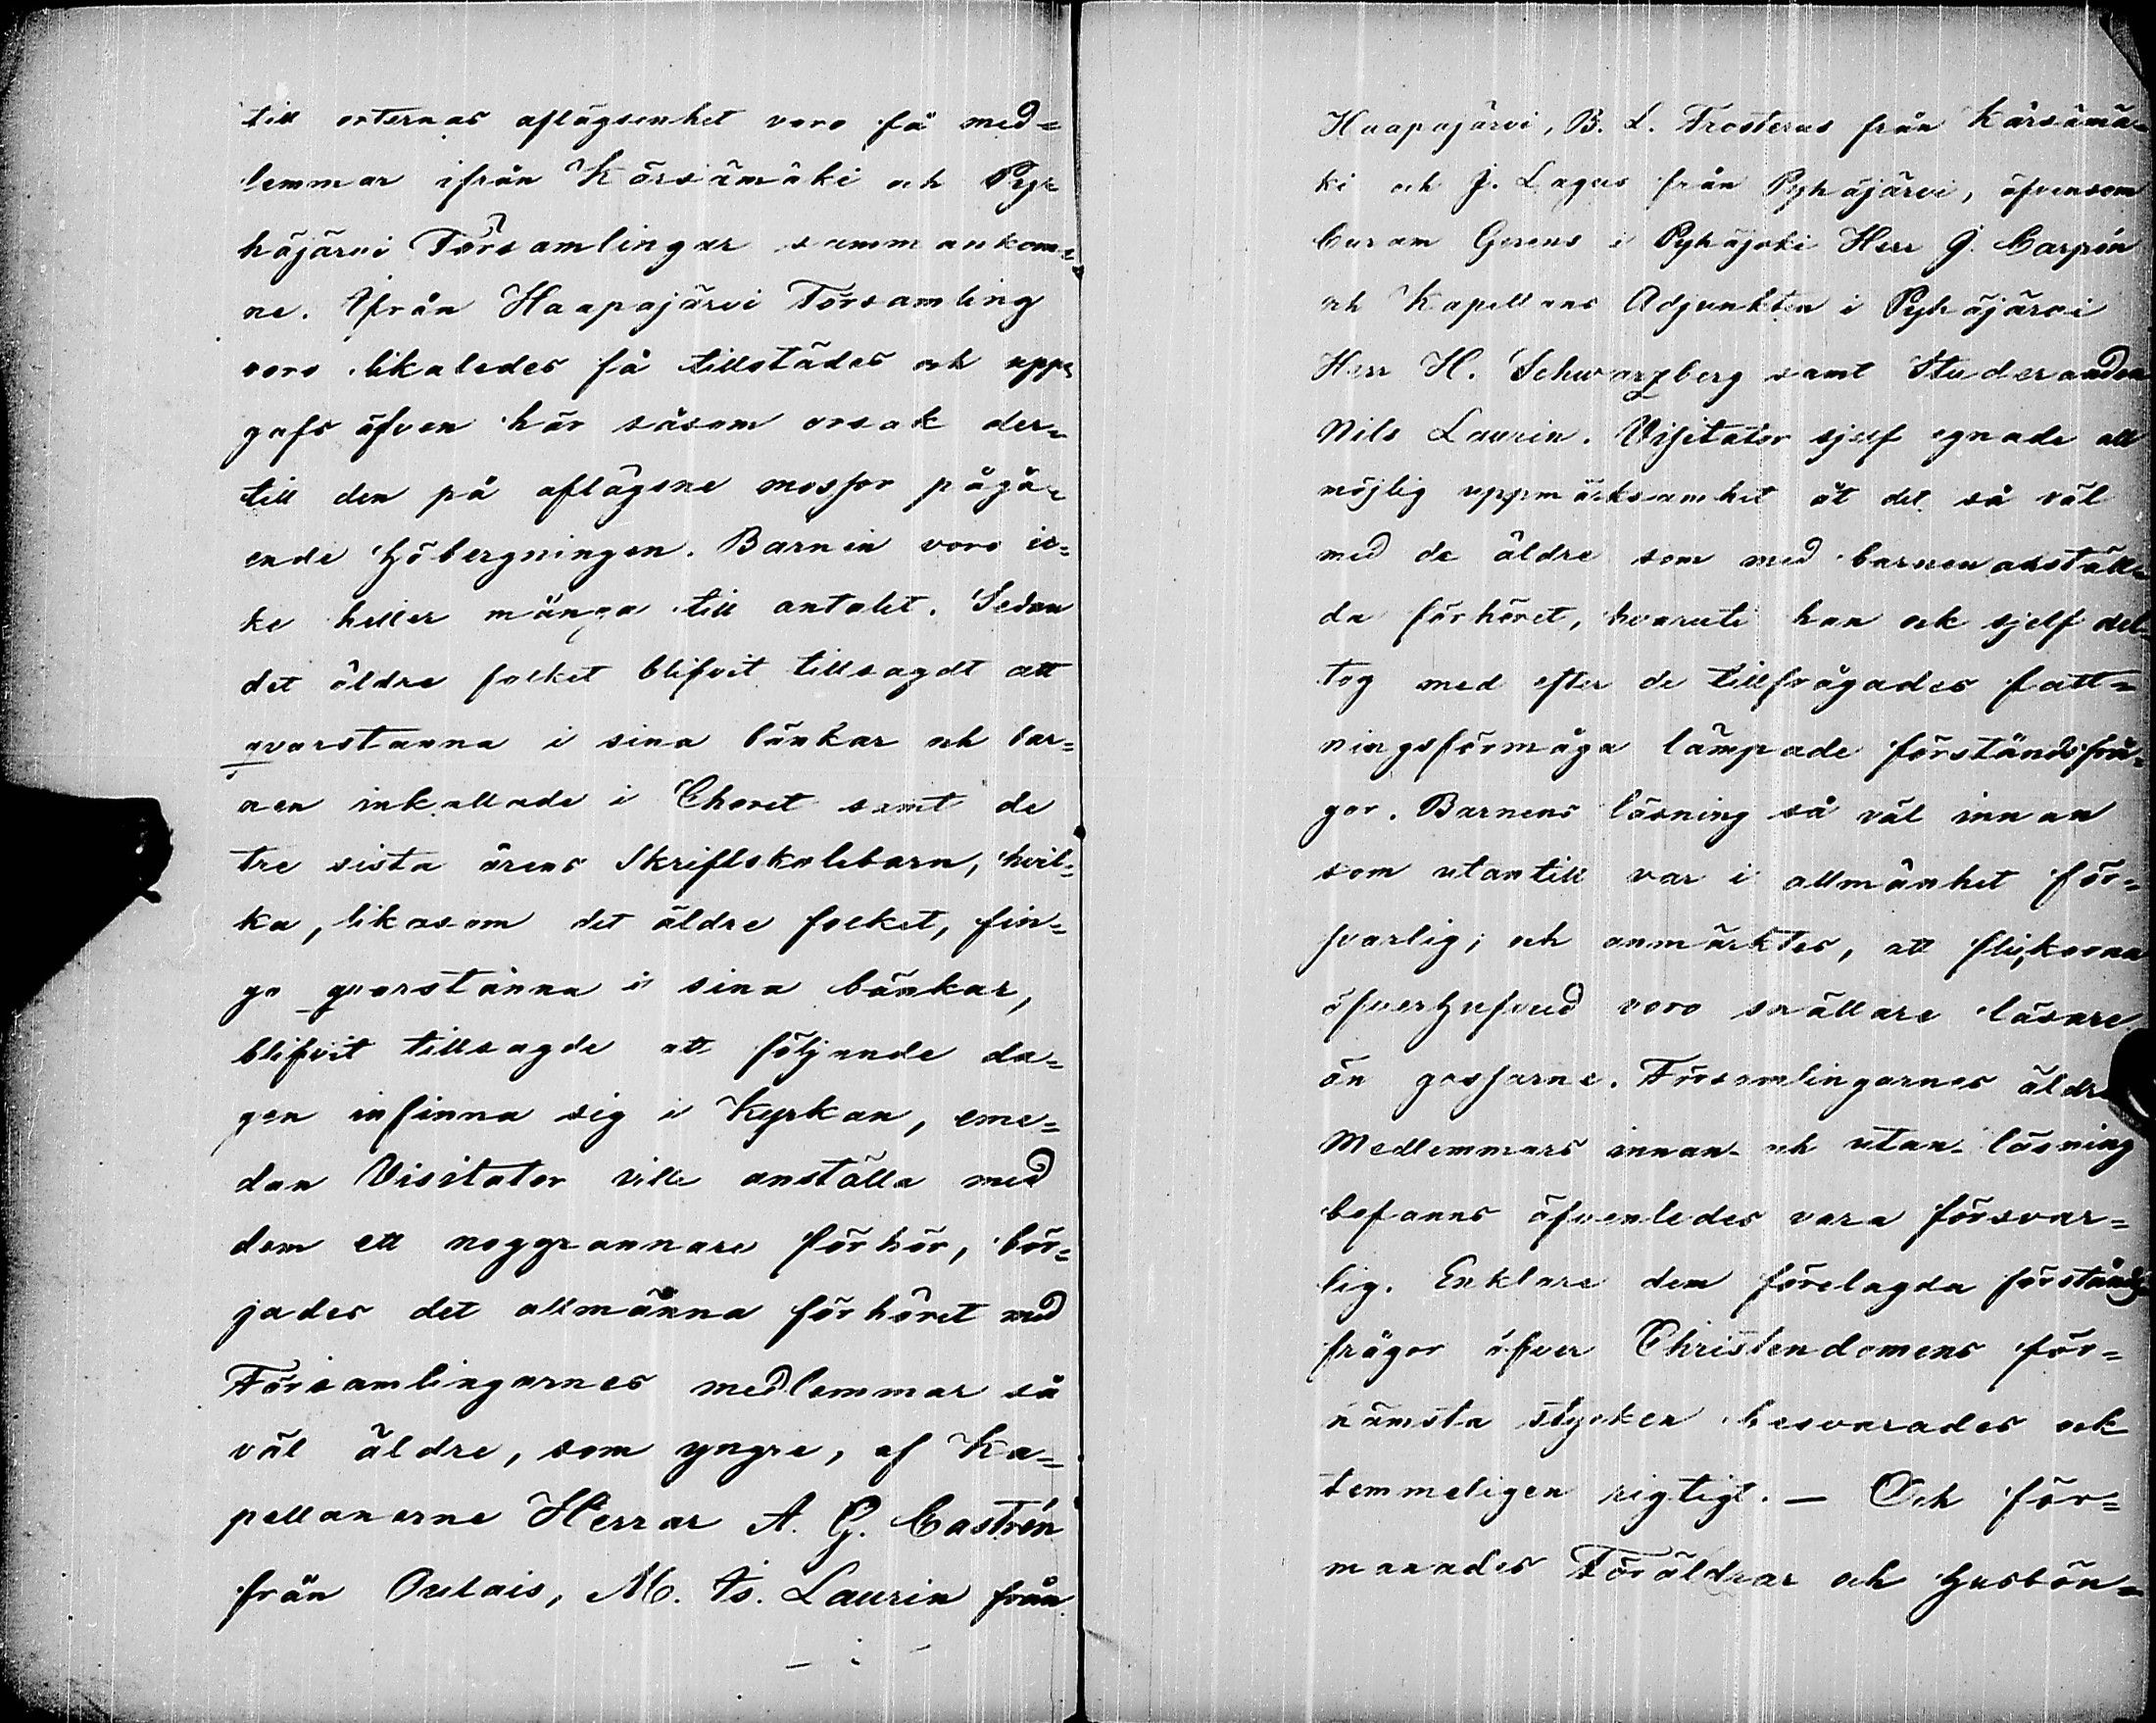 till orternas aflägsenhet voro få med=
lemmar ifrån Kärsämäki och Py=
häjärvi Församlingar sammankom=
ne. Ifrån Haapajärvi Församling
voro likaledes få tillstädes och upp=
gafs äfven här såsom orsak der=
till den på aflägsne mossor pågå=
ende höbergningen. Barnen voro ic=
ke heller många till antalet. Sedan
det äldre folket blifvit tillsagdt att
qvarstanna i sina bänkar och bar=
nen inkallade i Choret samt de
tre sista årens Skriftskolebarn, hvil=
ka, likasom det äldre folket, fin=
go qvarstanna i sina bänkar,
blifvit tillsagde att följande da=
gen infinna sig i Kyrkan, eme=
dan Visitator ville anställa med
dem ett noggrannare förhör, bör=
jades det allmänna förhöret med
Församlingarnes medlemmar så
väl äldre, som yngre, af Ka=
pellanerne Herrar A. G. Castrén
från Oulais, M. Is. Laurin från
Haapajärvi, B. L. Frosterus från Kärsämä=
ki och J. Lagus från Pyhäjärvi, äfvensom
Curam Gerens i Pyhäjoki Herr G. Carpén
och Kapellans Adjunkten i Pyhäjärvi
Herr H. Schwarzberg samt Studeranden
Nils Laurin. Visitator sjelf egnade all
möjlig uppmärksamhet åt det så väl
med de äldre som med barnen anställ=
da förhöret, hvaruti han ock sjelf del=
tog med efter de tillfrågades fatt=
ningsförmåga lämpade förståndsfrå=
gor. Barnens läsning så väl innan
som utantill var i allmänhet för=
svarlig; och anmärktes, att flickorna
öfverhufvud voro snällare läsare
än gossarne. Församlingarnes äldre
Medlemmars innan- och utan- läsning
befanns äfvenledes vara försvar=
lig. Enklare dem förelagda förstånds
frågor öfver Christendomens för=
nämsta stycken besvarades ock
temmeligen rigtigt. — Och för=
manades Föräldrar och husbön=